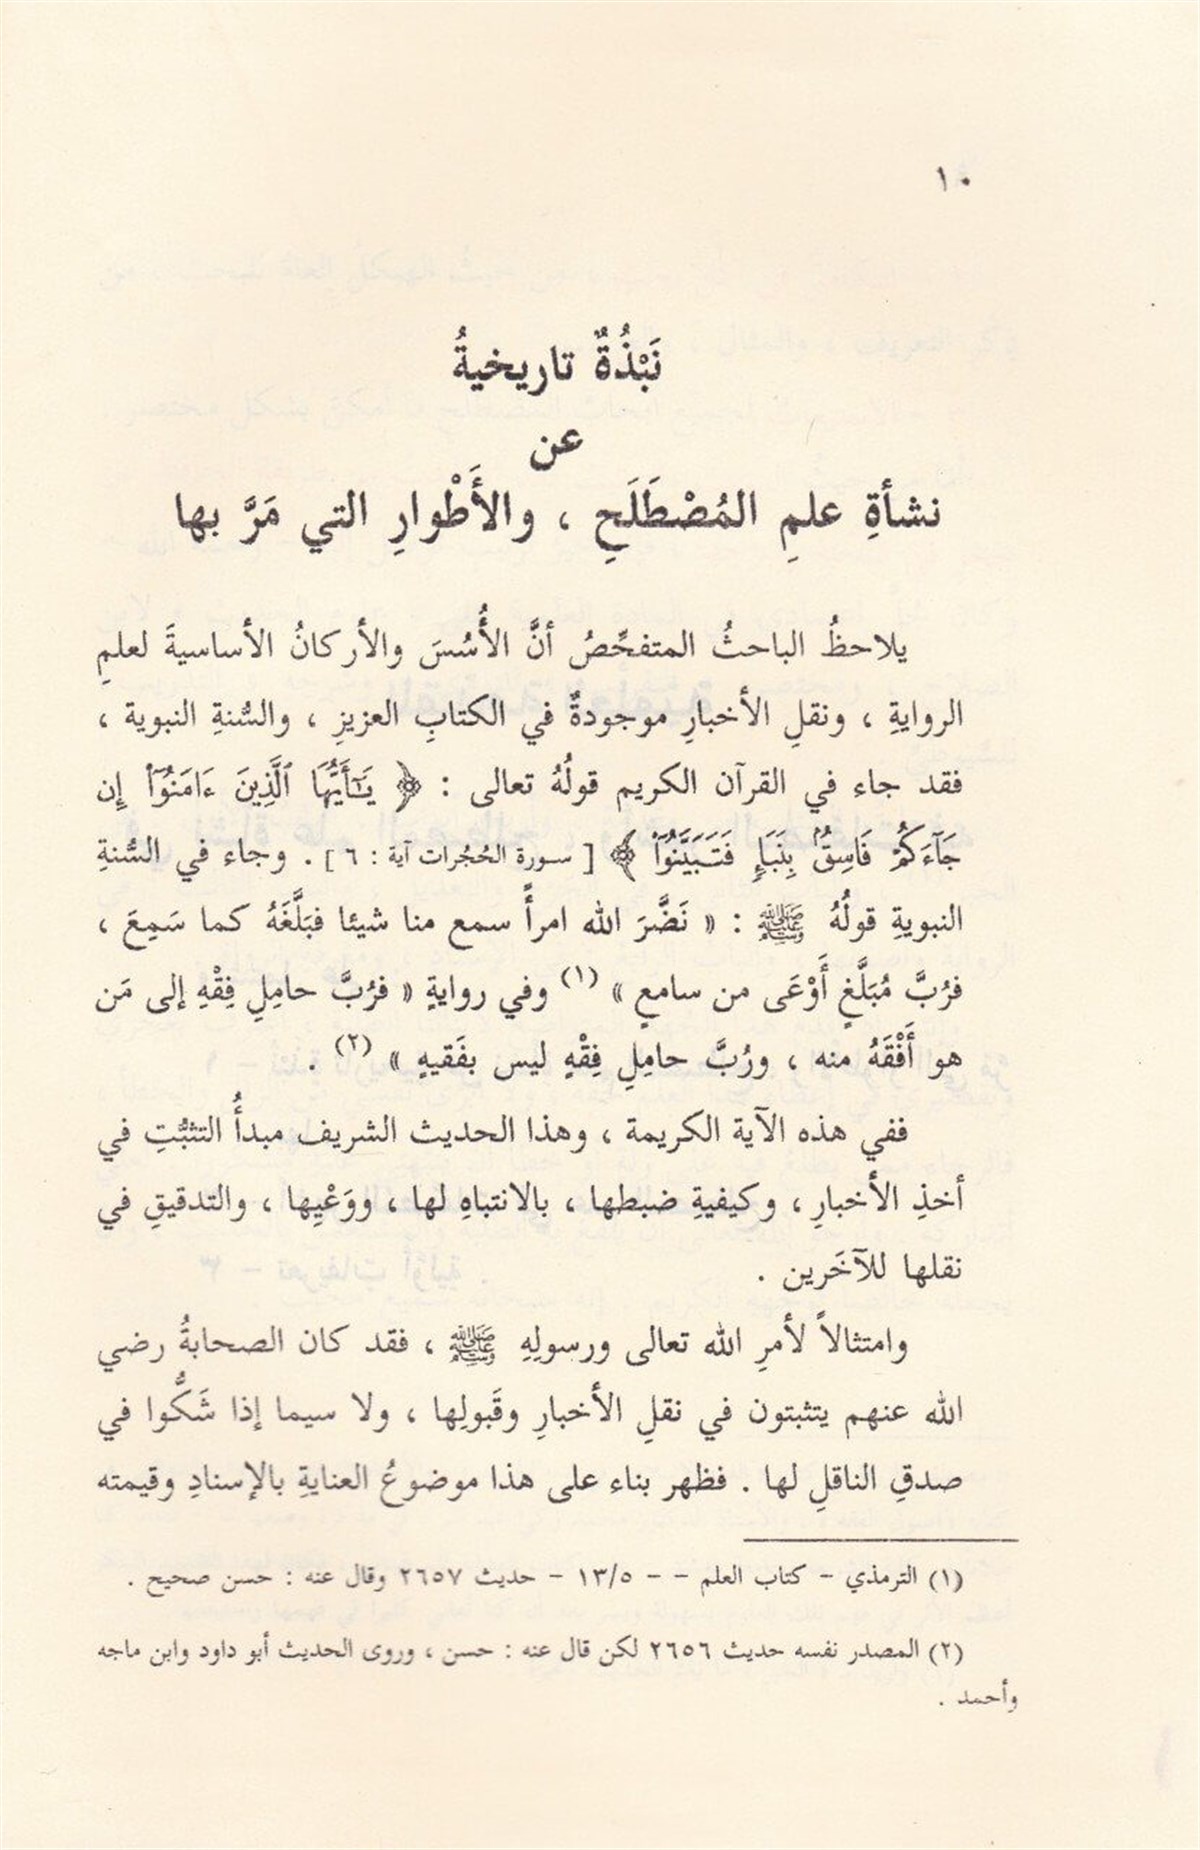 ١٠
نَبْذُةٌ تاريخيةُ
عن
نشأةِ علمِ المُصْطَلَحِ ، والأَطْوارِ التي مَرَّ بها
يلاحظُ الباحثُ المتفحِّصُ أنَّ الأُسُسَ والأركانُ الأساسيةَ لعلمِ
الروايةِ ، ونقلِ الأخبارِ موجودةٌ في الكتابِ العزيزِ ، والسُّنةِ النبوية ،
فقد جاء في القرآن الكريم قولُهُ تعالى : ﴿ يَٰٓأَيُّهَا ٱلَّذِينَ ءَامَنُوٓا۟ إِن
جَآءَكُمْ فَاسِقٌۢ بِنَبَإٍ فَتَبَيَّنُوٓا۟ ﴾ [ سورة الحُجُرات آية : ٦ ] . وجاء في السُّنةِ
النبويةِ قولُهُ ﷺ : « نَضَّرَ الله امرأً سمع منا شيئا فبَلَّغَهُ كما سَمِعَ ،
فرُبَّ مُبَلَّغٍ أَوْعَى من سامعٍ » (١) وفي روايةٍ « فرُبَّ حامِلِ فِقْهٍ إلى مَن
هو أَفْقَهُ منه ، ورُبَّ حامِلِ فِقْهٍ ليس بفَقيهٍ » (٢) .
ففي هذه الآية الكريمة ، وهذا الحديث الشريف مبدأُ التثبُّتِ في
أخذِ الأخبارِ ، وكيفيةِ ضبطها ، بالانتباهِ لها ، ووَعْيِها ، والتدقيقِ في
نقلها للآخَرين .
وامتثالاً لأمرِ الله تعالى ورسولِهِ ﷺ ، فقد كان الصحابةُ رضي
الله عنهم يتثبتون في نقلِ الأخبارِ وقَبولِها ، ولا سيما إذا شَكُّوا في
صدقِ الناقلِ لها . فظهر بناء على هذا موضوعُ العنايةِ بالإسنادِ وقيمته
(١) الترمذي - كتاب العلم - - ١٣/٥ - حديث ٢٦٥٧ وقال عنه : حسن صحيح .
(٢) المصدر نفسه حديث ٢٦٥٦ لكن قال عنه : حسن ، وروى الحديث أبو داود وابن ماجه
وأحمد .